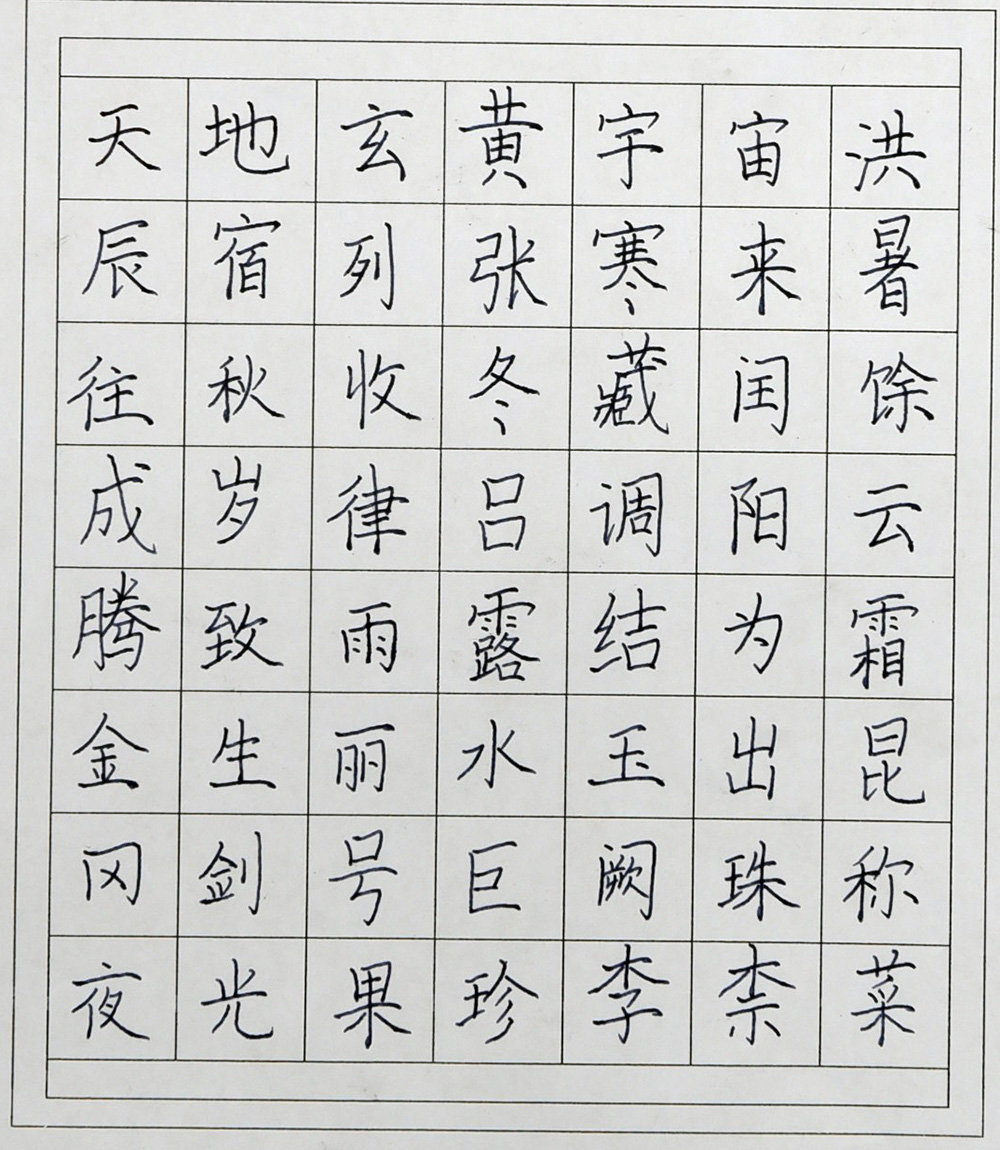 天地玄黄宇宙洪
辰宿列张寒来暑
往秋收冬藏闰馀
成岁律吕调阳云
腾致雨露结为霜
金生丽水玉出昆
冈剑号巨阙珠称
夜光果珍李柰菜